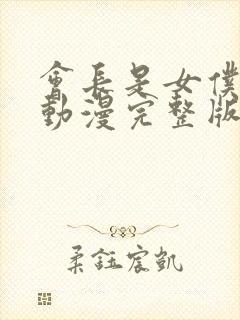 會長是女僕
動漫完整版
柔鈺宸凱